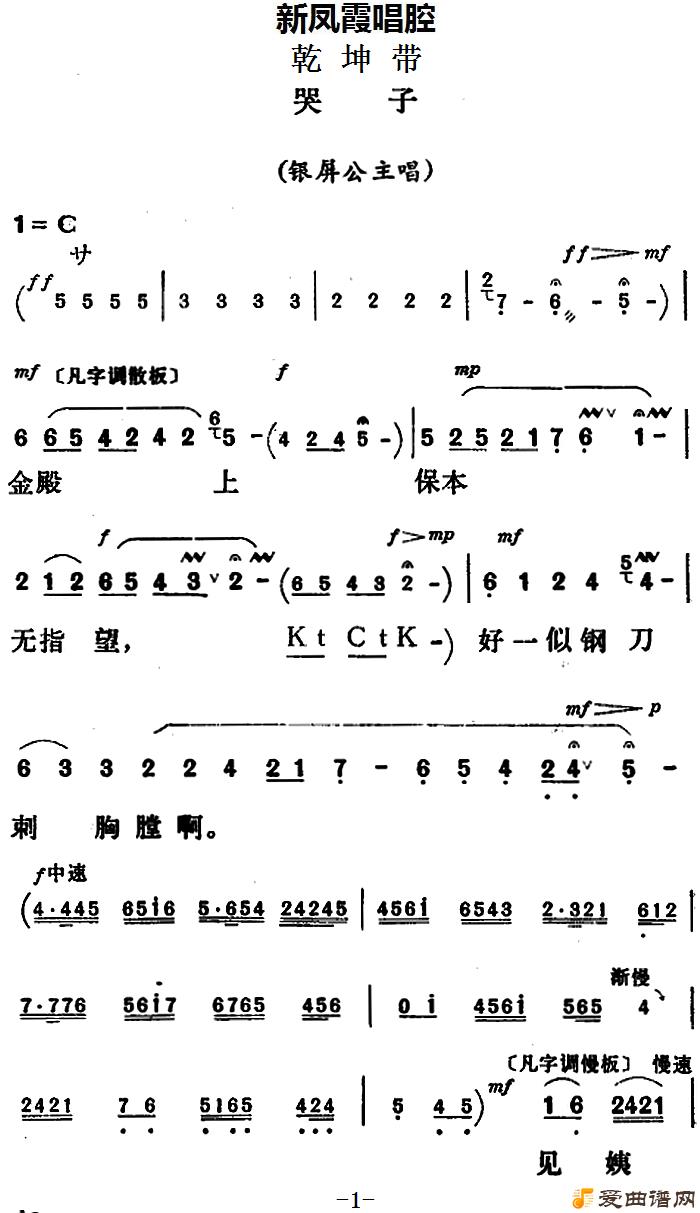 新凤霞唱腔
乾坤带
哭 子
(银屏公主唱)
1= C
サ
ff ff mf
( 5 5 5 5 | 3 3 3 3 | 2 2 2 2 | 2 7 - 6 - 5 - ) |
mf 〔凡字调散板〕 f mp
6 6 5 4 2 4 2 6 5 - ( 4 2 4 5 - ) | 5 2 5 2 1 7 6 1 -
金殿 上 保本
f f mp mf
2 1 2 6 5 4 3 2 - ( 6 5 4 3 2 - ) | 6 1 2 4 5 4 - |
无指 望, K t C t K - ) 好一似钢 刀
mf p
6 3 3 2 2 4 2 1 7 - 6 5 4 2 4 5 -
刺 胸膛啊。
f 中速
( 4·445 6516 5·654 24245 | 4561 6543 2·321 612 |
7·776 5617 6765 456 | 0 1 4561 565 4 |
渐慢
〔凡字调慢板〕 慢速
2421 7 6 5165 424 | 5 4 5 ) mf 1 6 2421 |
见 姨
-1-
爱曲谱网